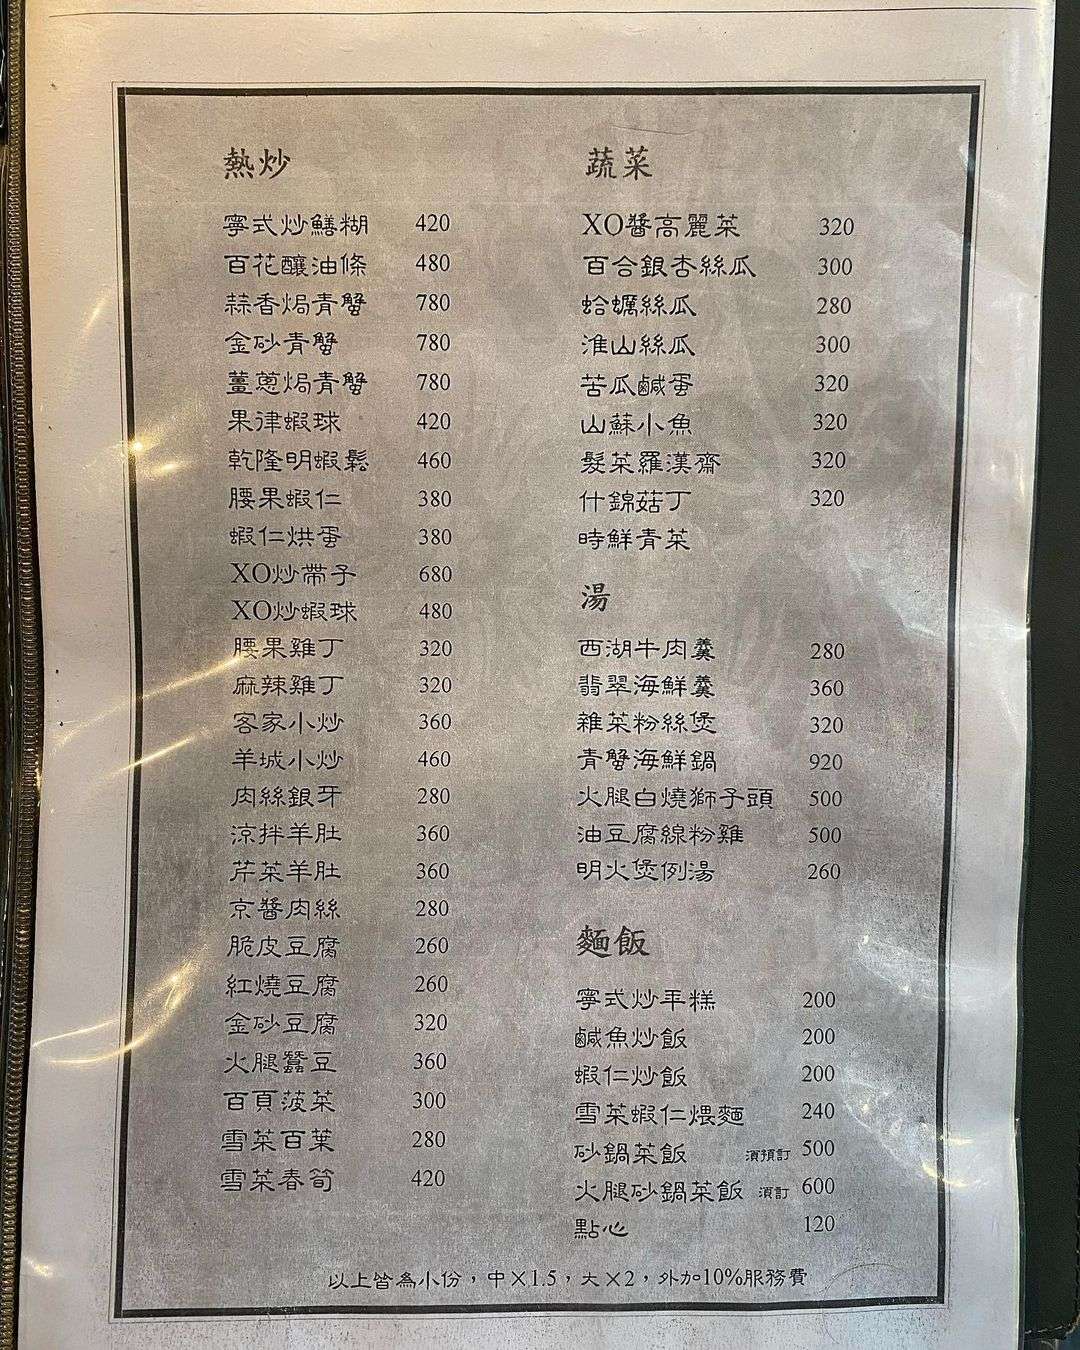 熱炒
寧式炒鱔糊 420
百花釀油條 480
蒜香焗青蟹 780
金砂青蟹 780
薑蔥焗青蟹 780
果律蝦球 420
乾隆明蝦鬆 460
腰果蝦仁 380
蝦仁烘蛋 380
XO炒帶子 680
XO炒蝦球 480
腰果雞丁 320
麻辣雞丁 320
客家小炒 360
羊城小炒 460
肉絲銀牙 280
涼拌羊肚 360
芹菜羊肚 360
京醬肉絲 280
脆皮豆腐 260
紅燒豆腐 260
金砂豆腐 320
火腿蠶豆 360
百頁菠菜 300
雪菜百葉 280
雪菜春筍 420
蔬菜
XO醬高麗菜 320
百合銀杏絲瓜 300
蛤蠣絲瓜 280
淮山絲瓜 300
苦瓜鹹蛋 320
山蘇小魚 320
髮菜羅漢齋 320
什錦菇丁 320
時鮮青菜
湯
西湖牛肉羹 280
翡翠海鮮羹 360
雜菜粉絲煲 320
青蟹海鮮鍋 920
火腿白燒獅子頭 500
油豆腐線粉雞 500
明火煲例湯 260
麵飯
寧式炒年糕 200
鹹魚炒飯 200
蝦仁炒飯 200
雪菜蝦仁煨麵 240
砂鍋菜飯 須預訂 500
火腿砂鍋菜飯 須訂 600
點心 120
以上皆為小份，中×1.5，大×2，外加10%服務費